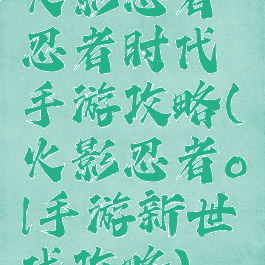 火影忍者
忍者时代
手游攻略(
火影忍者。
|手游新世
代攻略)